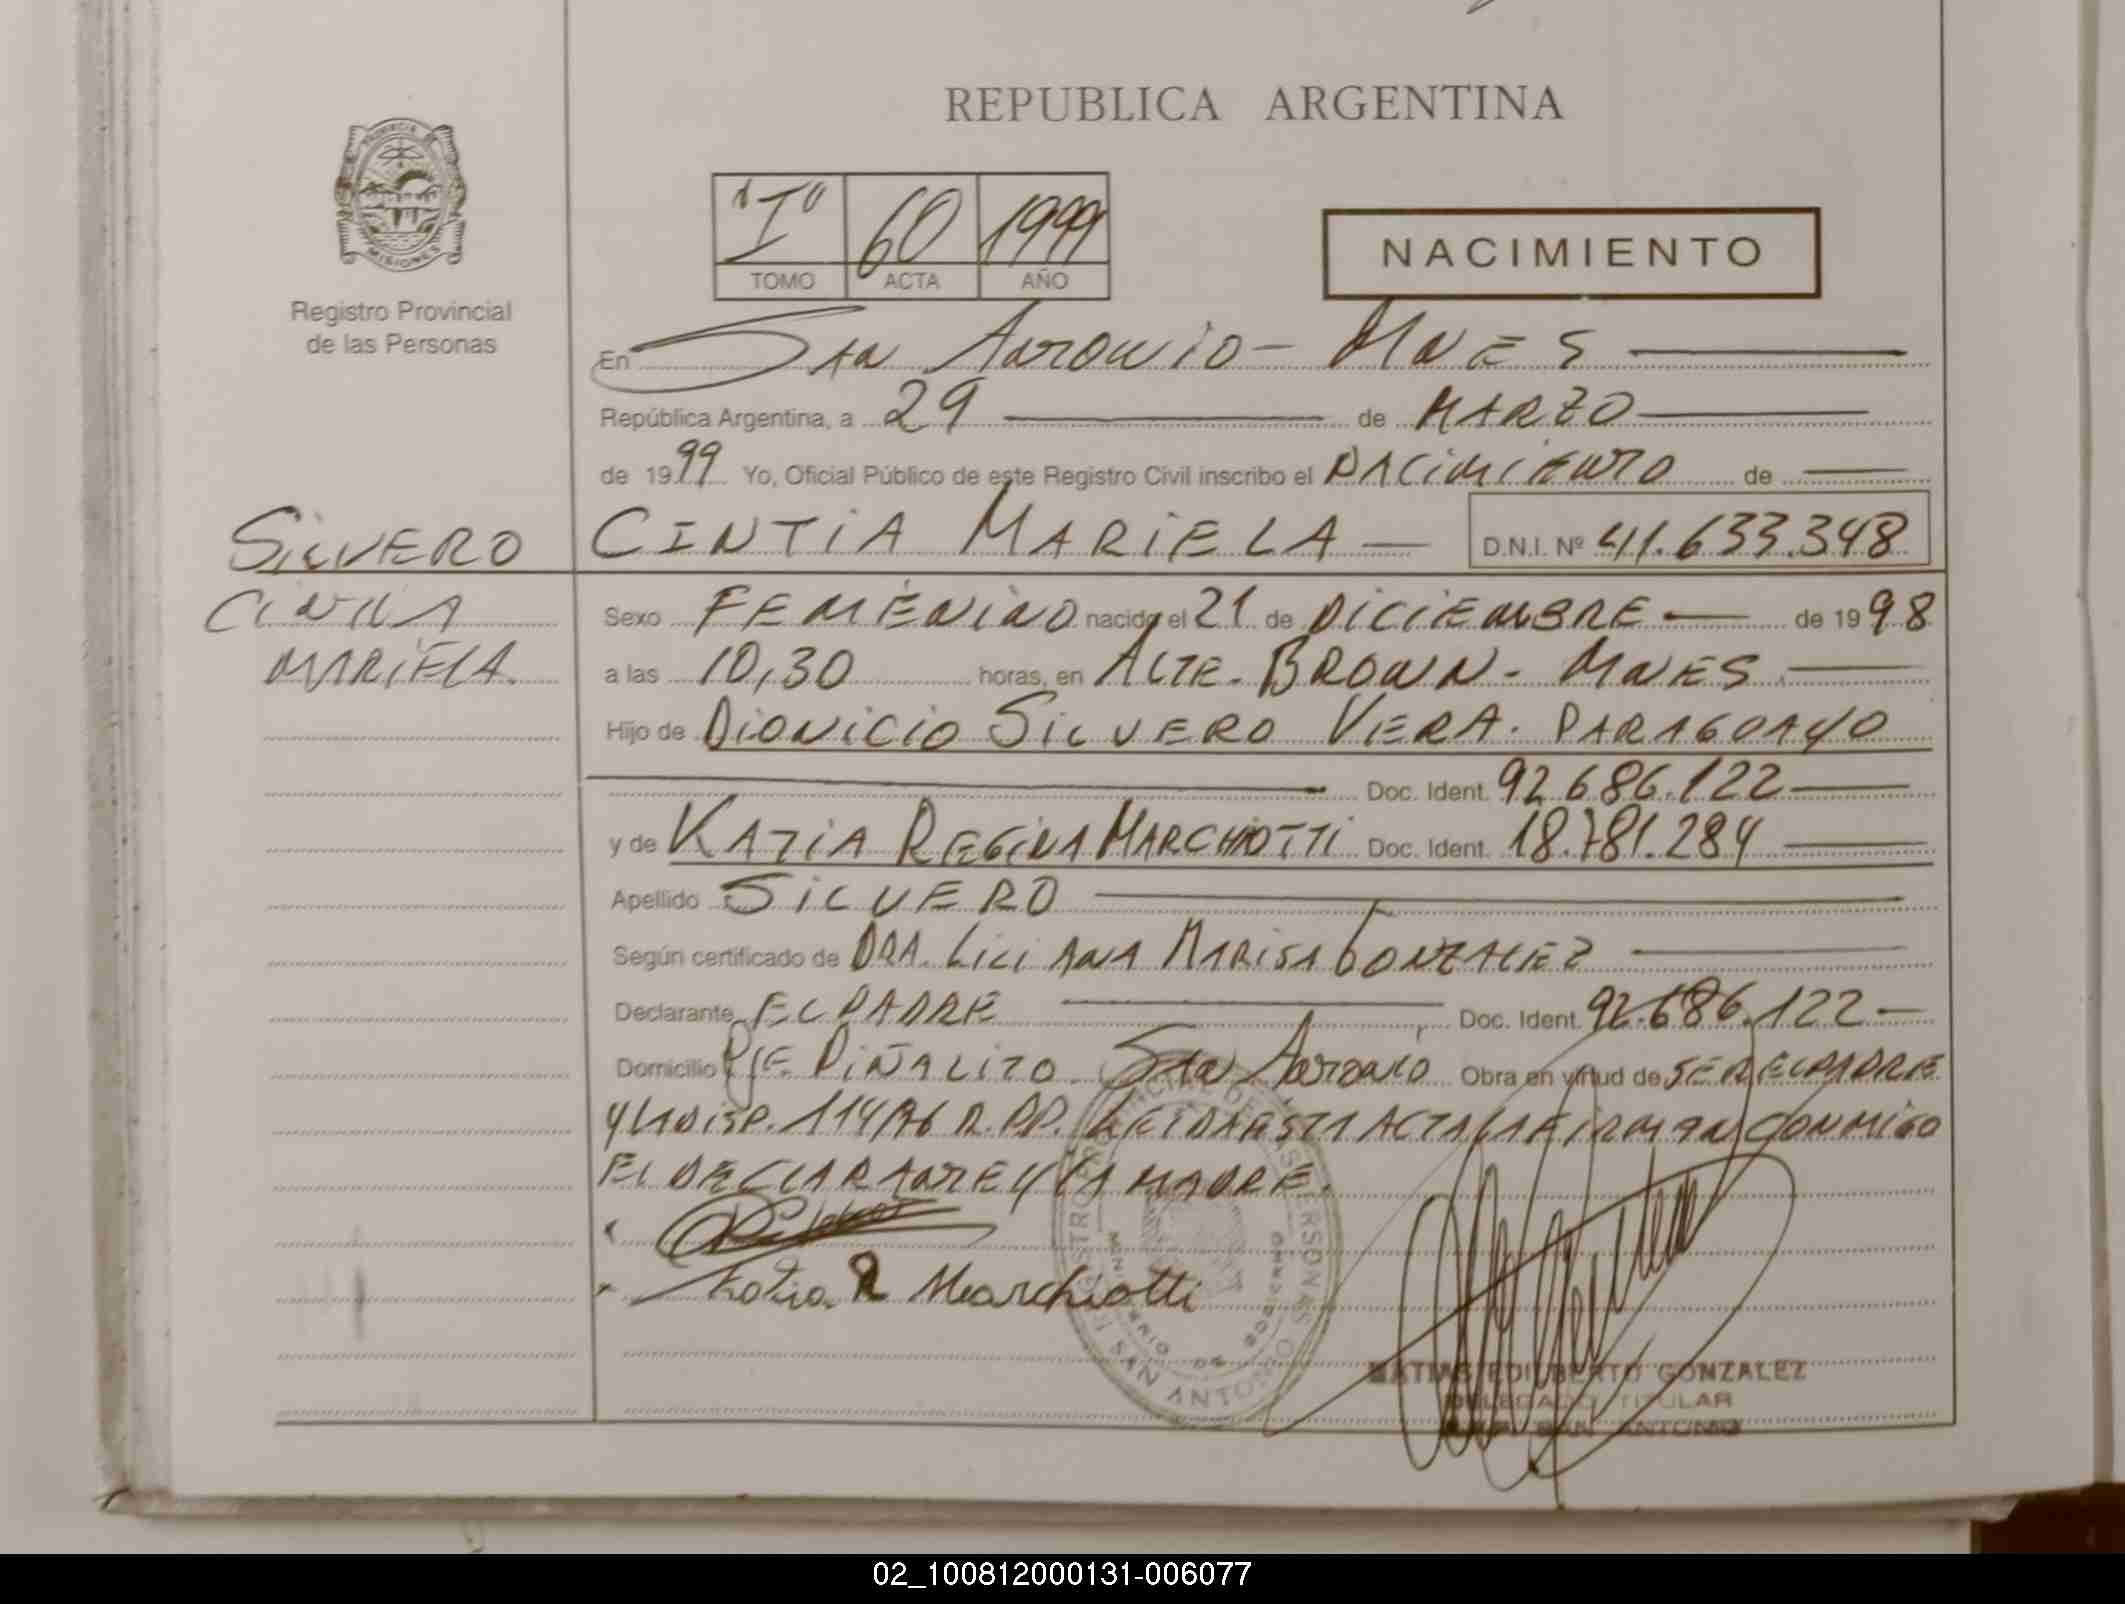 REPUBLICA ARGENTINA
PROVINCIA
MISIONES
Registro Provincial
de las Personas
"I" 60 1999
TOMO ACTA AÑO
NACIMIENTO
En San Antonio - MNES
República Argentina, a 29 de MARZO
de 1999 Yo, Oficial Público de este Registro Civil inscribo el NACIMIENTO de
SILVERO CINTIA MARIELA - D.N.I. Nº 41.633.348
CINTIA
MARIELA.
Sexo FEMENINO nacido el 21 de DICIEMBRE de 1998
a las 10,30 horas, en ALTE. BROWN - MNES
Hijo de DIONICIO SILVERO VERA. PARAGUAYO
Doc. Ident. 92.686.122
y de KATIA REGINA MARCHIOTTI Doc. Ident. 18.781.284
Apellido SILVERO
Según certificado de DRA. LILIANA MARISA GONZALEZ
Declarante EL PADRE Doc. Ident. 92.686.122
Domicilio PJE. PIÑALITO San Antonio Obra en virtud de SER EL PADRE
Y LA DISP. 114/96 R.P.P. LEIDA ESTA ACTA LA FIRMAN CONMIGO
EL DECLARANTE Y LA MADRE.
Katia R Marchiotti
REGISTRO PROVINCIAL DE LAS PERSONAS
MINISTERIO DE GOBIERNO
SAN ANTONIO
MATIAS EDILBERTO GONZALEZ
DELEGADO TITULAR
SAN ANTONIO
02_100812000131-006077